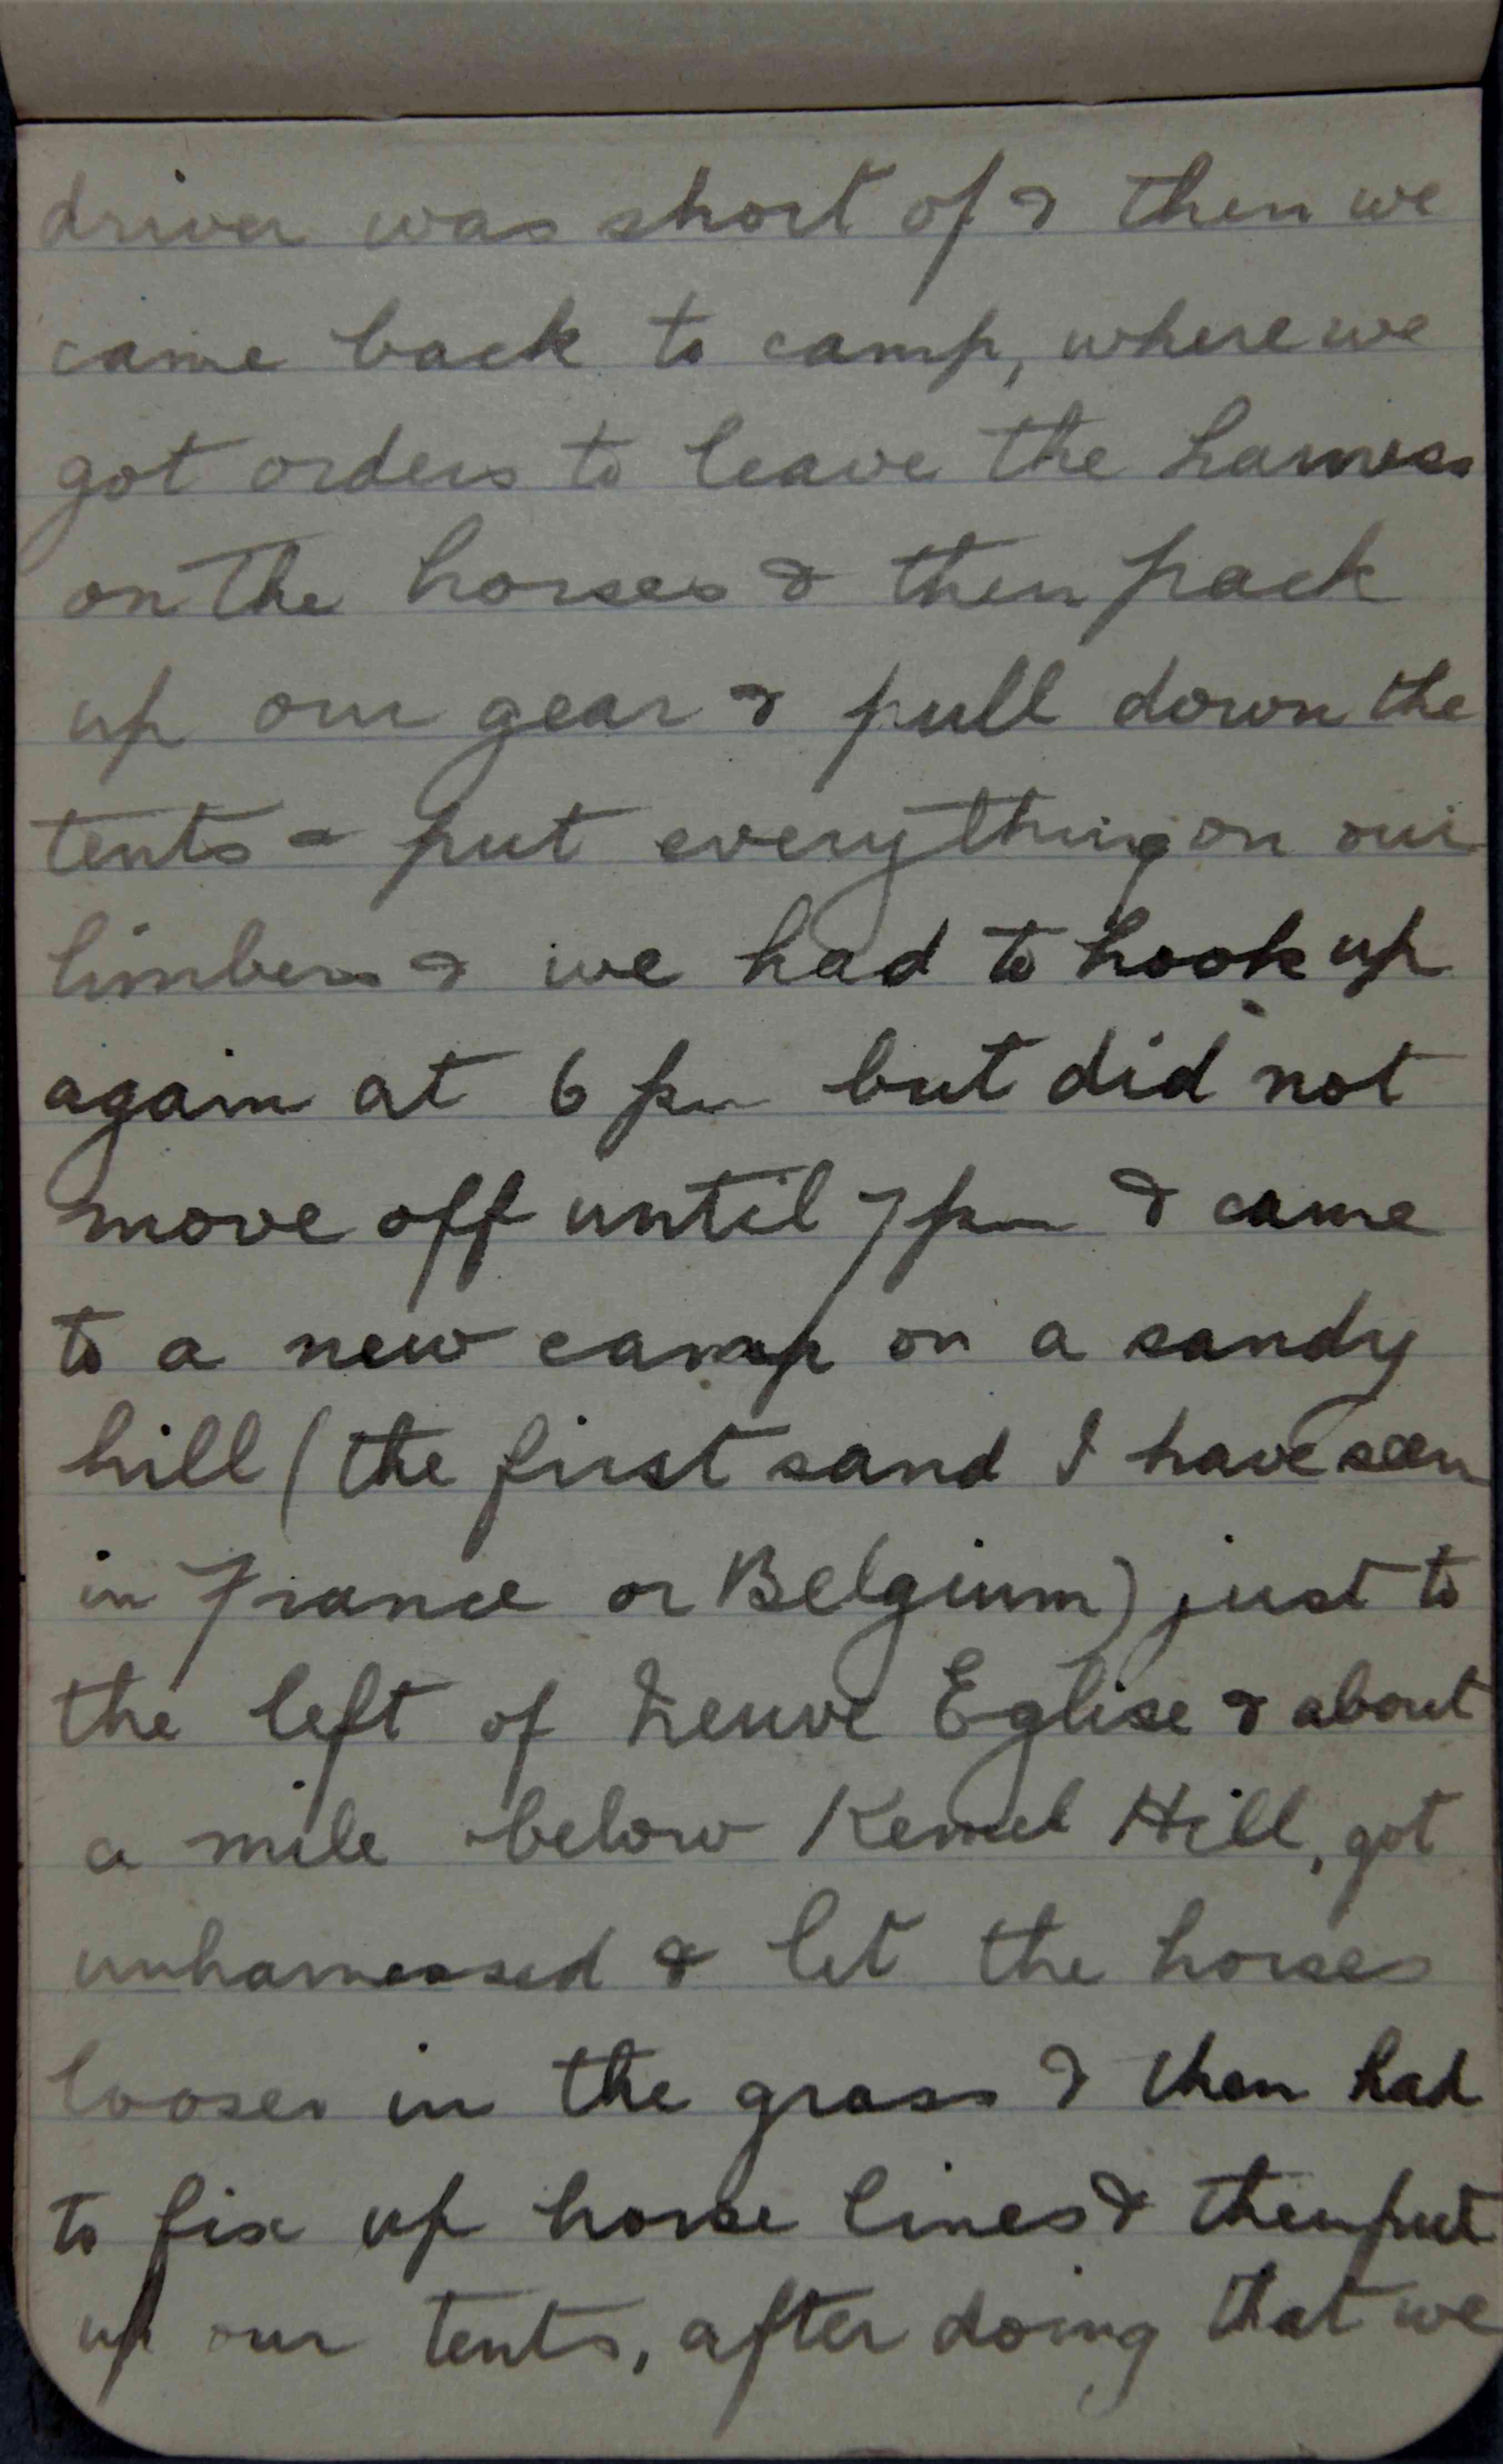 driver was short of & then we
came back to camp, where we
got orders to leave the harness
on the horses & then pack
up our gear & pull down the
tents & put everything on our
limbers & we had to hook up
again at 6 pm but did not
move off until 7 pm & came
to a new camp on a sandy
hill (the first sand I have seen
in France or Belgium) just to
the left of Neuve Eglise & about
a mile below Kemel Hill, got
unharnessed & let the horses
looses in the grass & then had
to fix up horse lines & then put
up our tents, after doing that we